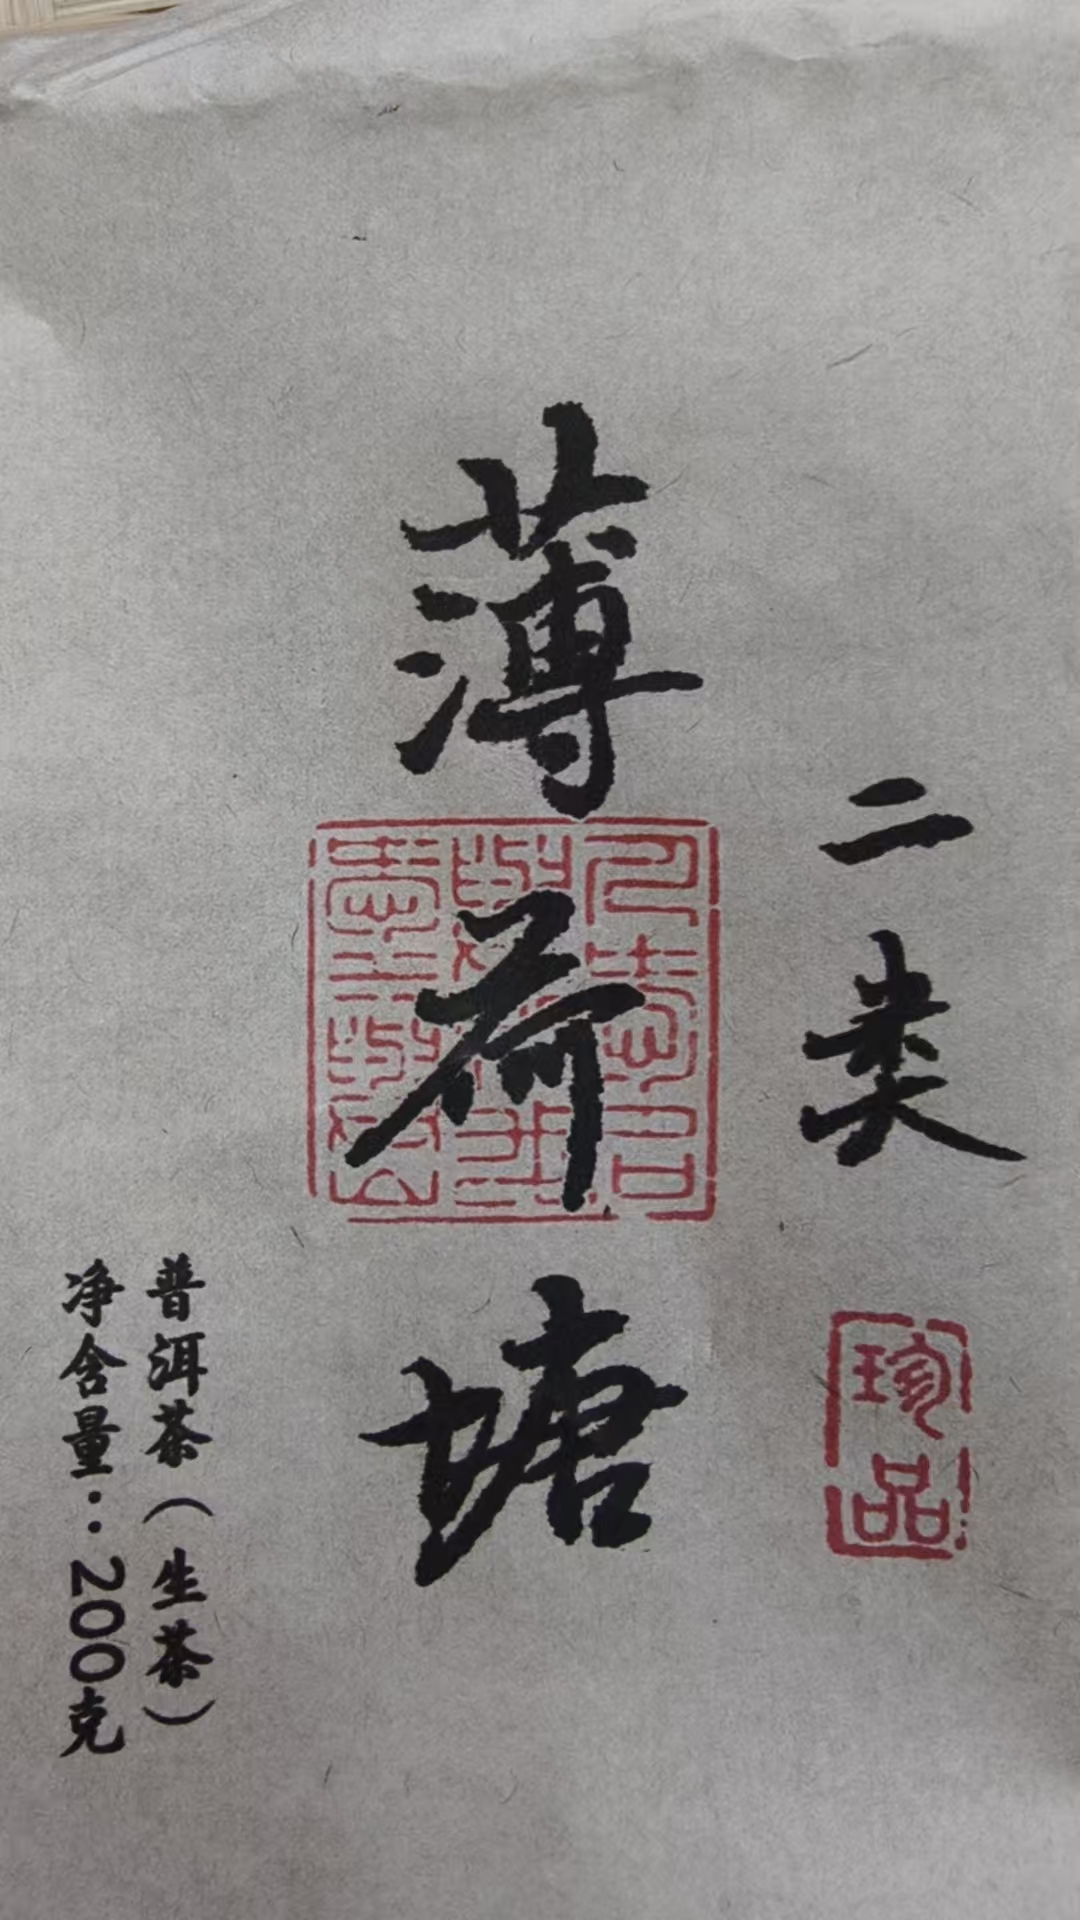 二类
珍品
薄荷塘
普洱茶（生茶）
净含量：200克